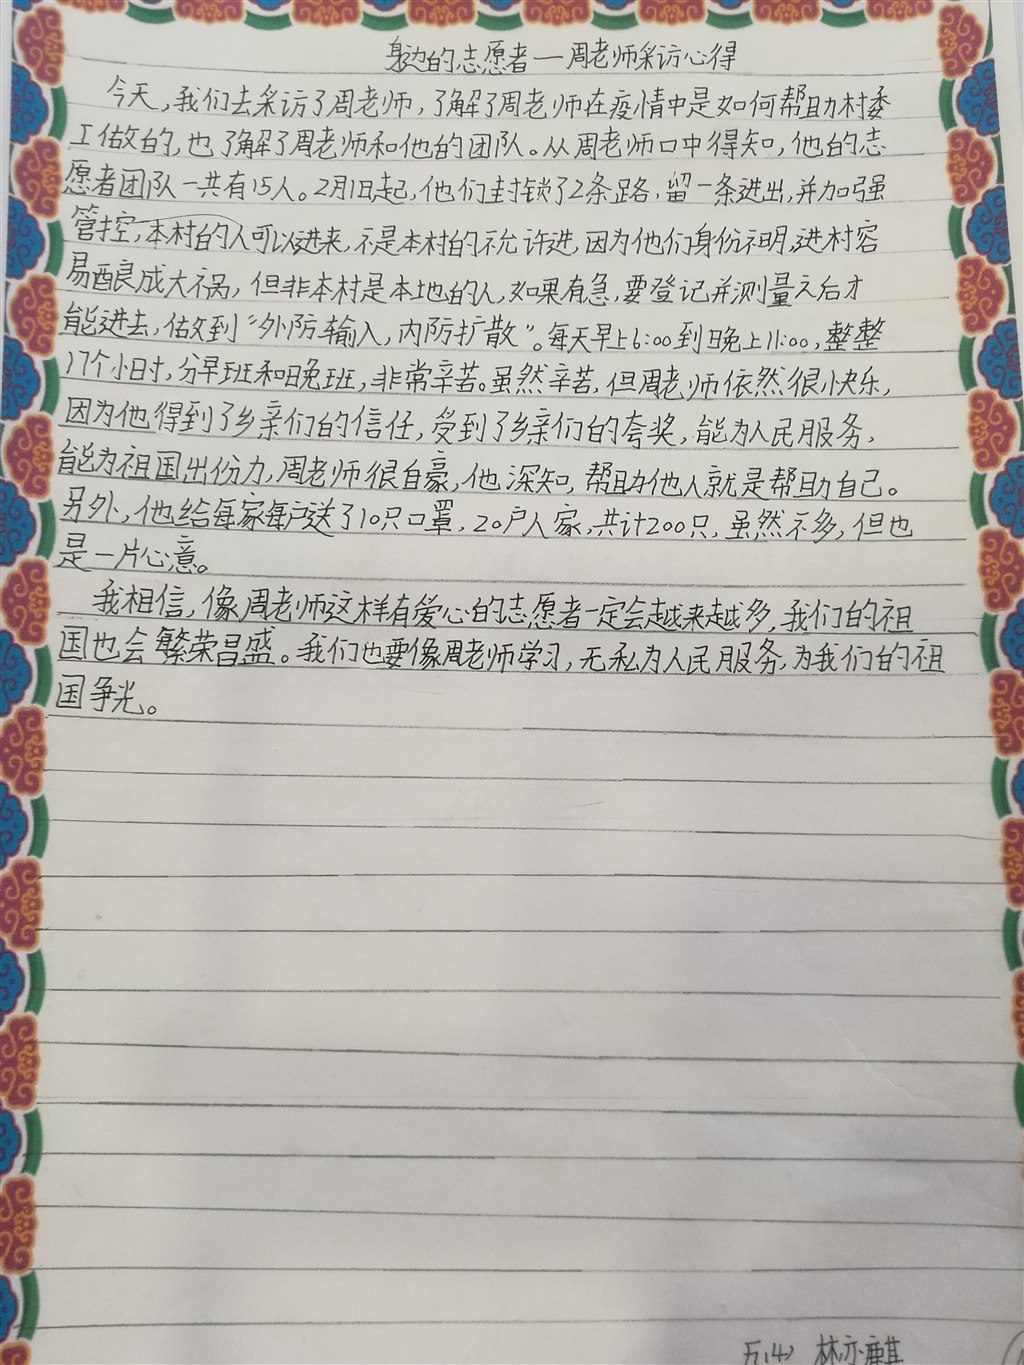 身边的志愿者—周老师采访心得
今天,我们去采访了周老师,了解了周老师在疫情中是如何帮助村委
工做的,也了解了周老师和他的团队。从周老师口中得知,他的志
愿者团队一共有15人。2月1日起,他们封锁了2条路,留一条进出,并加强
管控,本村的人可以进来,不是本村的不允许进,因为他们身份不明,进村容
易酿成大祸,但非本村是本地的人,如果有急,要登记并测量之后才
能进去,做到“外防输入,内防扩散”。每天早上6:00到晚上11:00,整整
17个小时,分早班和晚班,非常辛苦。虽然辛苦,但周老师依然很快乐,
因为他得到了乡亲们的信任,受到了乡亲们的夸奖,能为人民服务,
能为祖国出份力,周老师很自豪,他深知,帮助他人就是帮助自己。
另外,他给每家每户送了10只口罩,20户人家,共计200只,虽然不多,但也
是一片心意。
我相信,像周老师这样有爱心的志愿者一定会越来越多,我们的祖
国也会繁荣昌盛。我们也要像周老师学习,无私为人民服务,为我们的祖
国争光。
五(4) 林亦麒